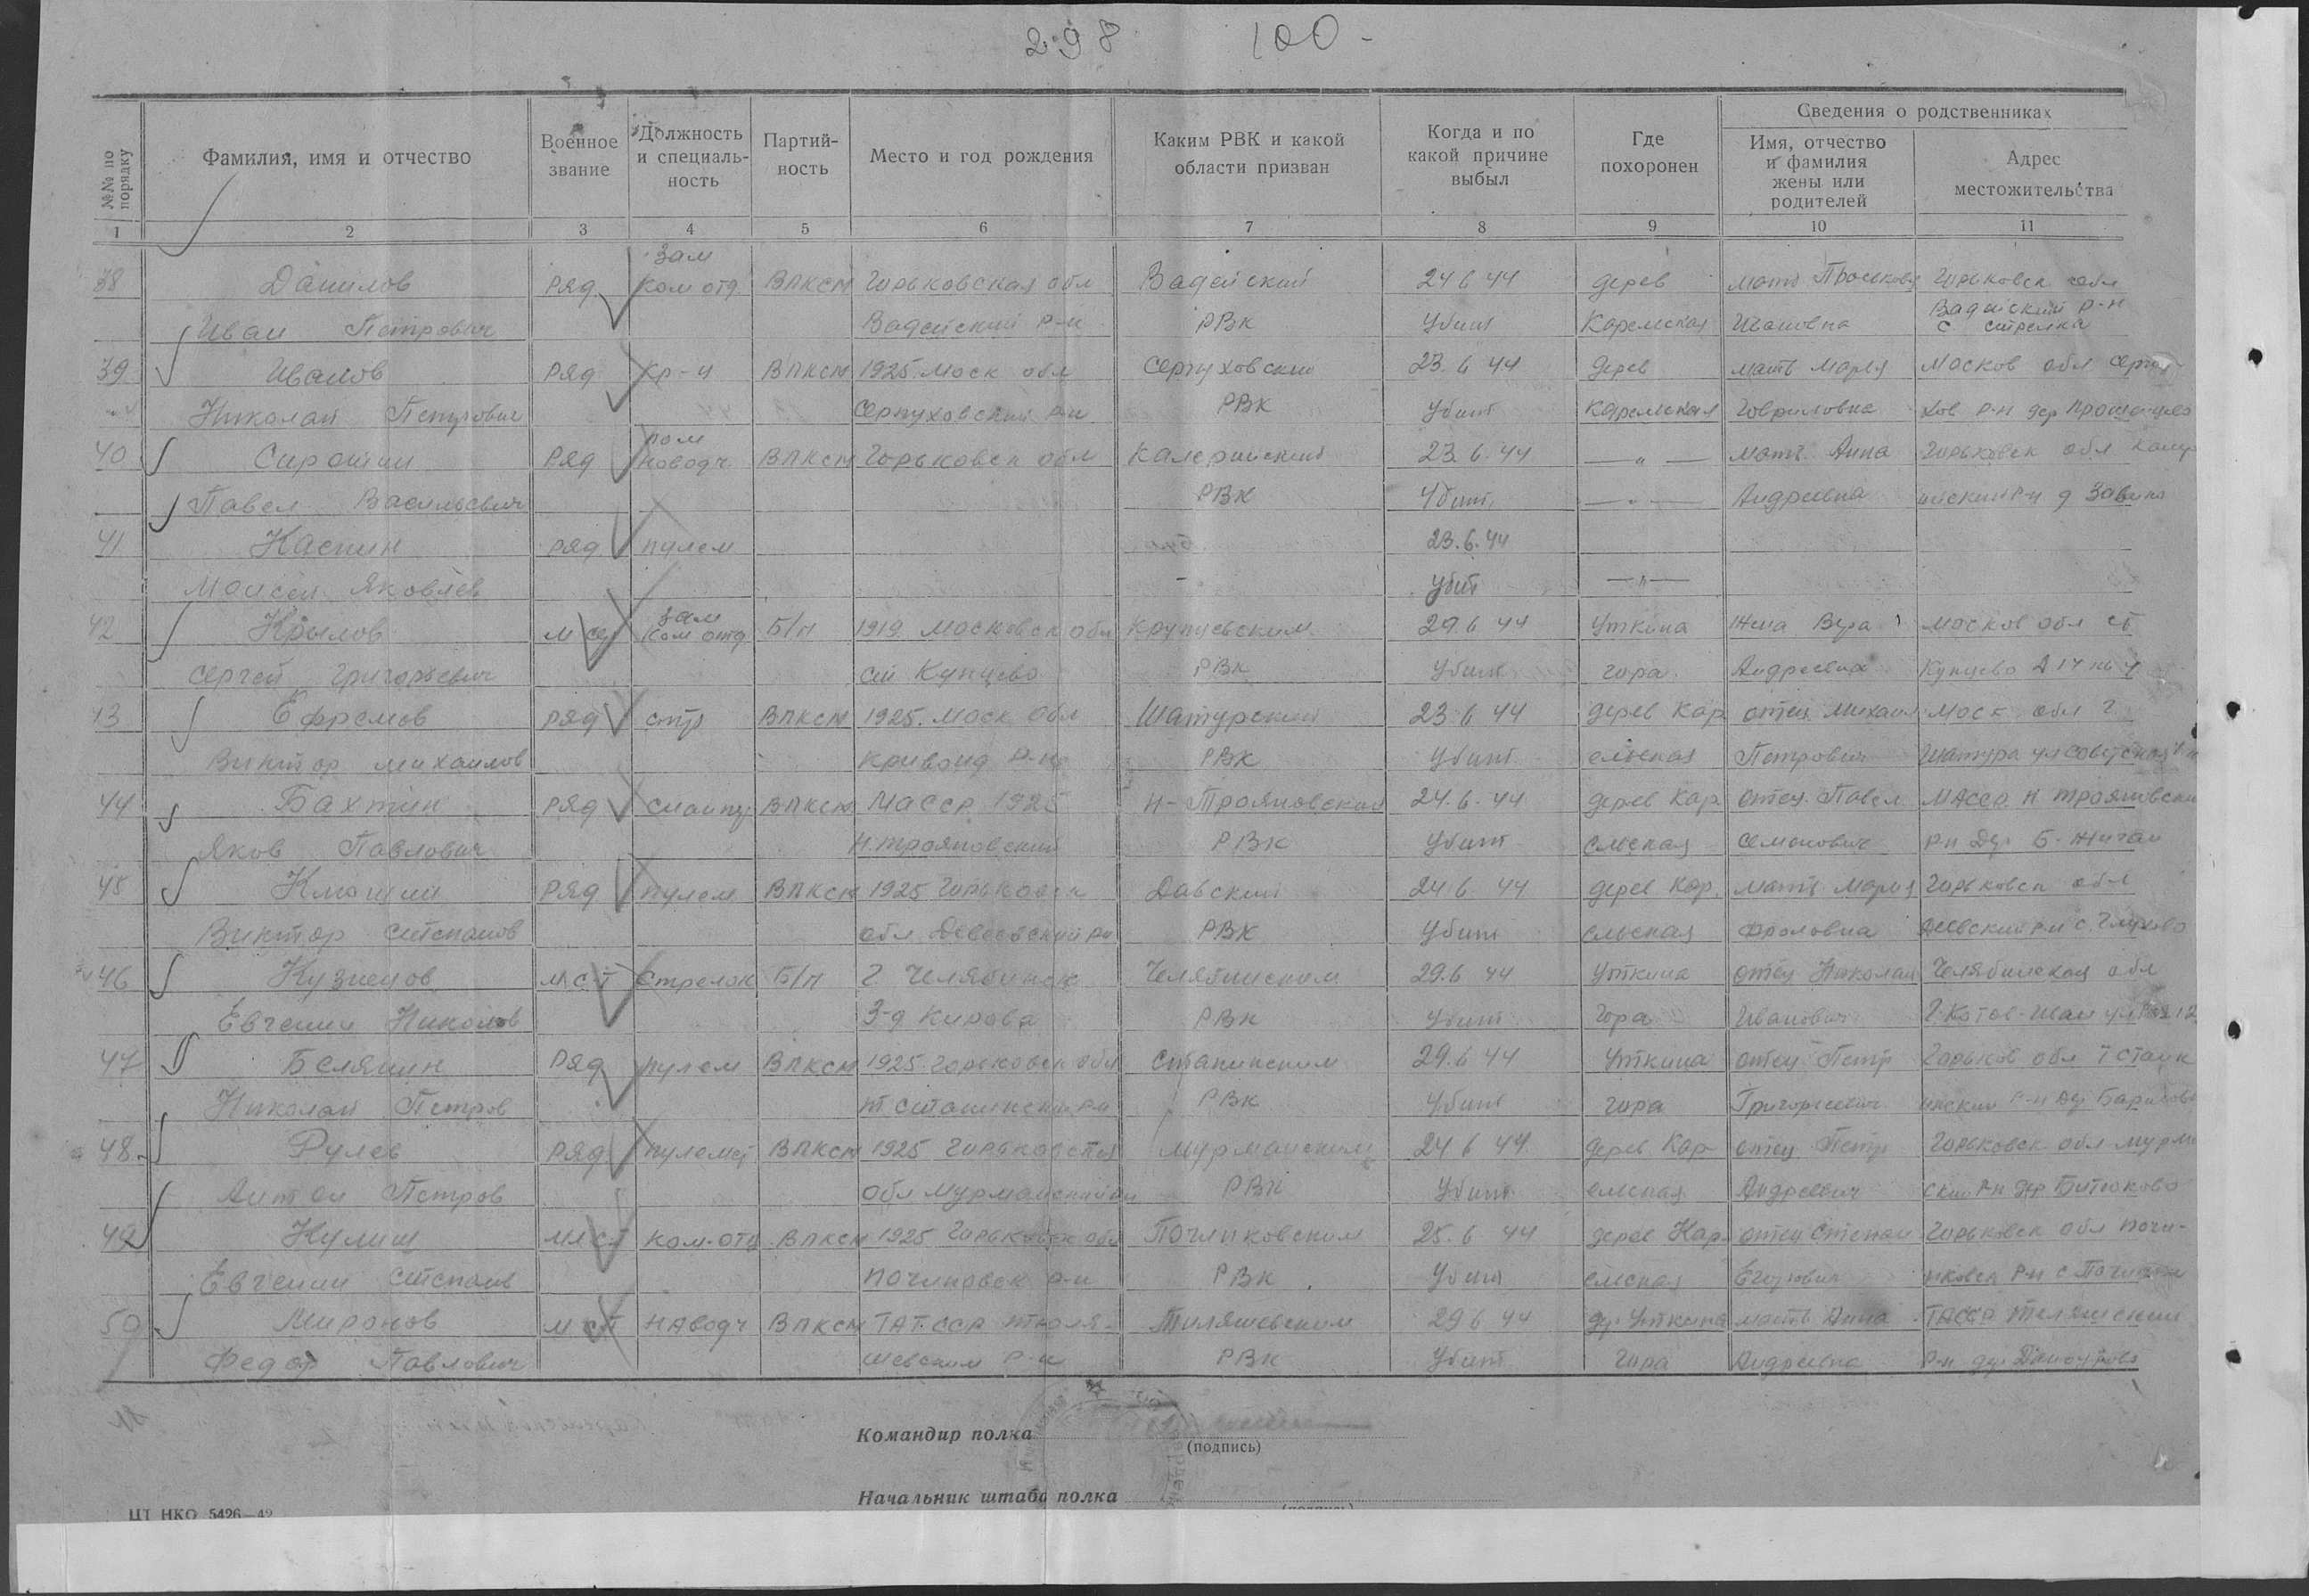 298 100-
№№ по порядку
Фамилия, имя и отчество
Военное звание
Должность и специаль-ность
Партий-ность
Место и год рождения
Каким РВК и какой области призван
Когда и по какой причине выбыл
Где похоронен
Сведения о родственниках
Имя, отчество и фамилия жены или родителей
Адрес местожительства
1 2 3 4 5 6 7 8 9 10 11
зам
38 Данилов ряд ком отд ВЛКСМ Горьковская обл Вадский 24 6 44 дерев мать Горьковск обл
Иван Петрович Вадский р-н РВК Убит Карельская Ивановна Вадский р-н
с стрелка
39 Иванов ряд кр-ц ВЛКСМ 1925 Моск обл Серпуховский 23.6 44 дерев мать Мария Москов обл Серпу
Николай Петрович Серпуховский р-н РВК Убит Карельская Гавриловна хов р-н дер
пом
40 Сирошин ряд наводч ВЛКСМ Горьковск обл 23.6.44 —"— мать Анна Горьковск обл
Павел Васильевич РВК Убит —"— Андреевна р-н д
41 Каспин ряд пулем 23.6.44
Моисей Яковлев убит —"—
зам
42 Крылов м се ком отд Б/п 1919 Московск обл 29.6 44 Уткина жена Вера Москов обл ст
Сергей Григорьевич Кунцево РВК Убит гора Андреевна Кунцево
43 Ефремов ряд стр ВЛКСМ 1925. Моск обл Шатурский 23 6 44 дерев Кар отец Михаил Моск обл г
Виктор Михайлов р-н РВК Убит ельская Петрович Шатура ул Советская
44 Бахтин ряд ВЛКСМ МАССР 1925 Н-Трояновский 24.6.44 дерев Кар отец Павел МАССР Н Трояновски
Яков Павлович Н.Трояновский РВК Убит ельская Семенович р-н Дер Б-
45 Клюшин ряд пулем ВЛКСМ 1925 Горьковск 24 6 44 дерев Кар. мать Мария Горьковск обл
Виктор Степанов обл Девеевский рн РВК Убит ельская Фроловна р-н с. Глухово
46 Кузнецов м с-т стрелок Б/п г Челябинск Челябинским 29.6 44 Уткина отец Николай Челябинская обл
Евгений Николов З-д Кирова РВК Убит Гора Иванович
47 Белянин ряд пулем ВЛКСМ 1925 Горьковск обл 29.6 44 Уткина отец Петр Горьков обл
Николай Петров РВК Убит гора Григорьевич р-н дер
48 Рулев ряд пулемет ВЛКСМ 1925 Горьковская Мурманским 24 6 44 дерев Кар отец Петр Горьковск обл Мурма
Антон Петров обл РВК Убит ельская Андреевич ский р-н дер Битюково
49 Кулиш мл с-т ком.отд ВЛКСМ 1925 Горьковск обл Починковским 25.6 44 дерев Кар отец Степан Горьковск обл Почи-
Евгений Степанв Починовск р-н РВК Убит ельская Егорович нковск р-н с Починки
50 Миронов м с-т наводч ВЛКСМ ТАТ.ССР Тюля- 29 6 44 др Уткина мать Анна ТАССР
Федор Павлович шевским р-н РВК Убит гора Андреевна р-н дер
Командир полка
(подпись)
Начальник штаба полка
(подпись)
ЦТ НКО 5426—42